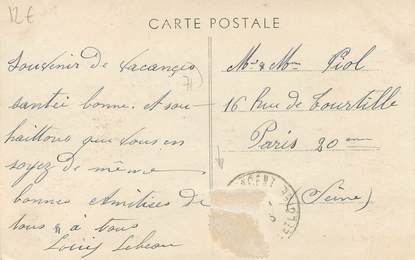 12€
CARTE POSTALE
Souvenir de vacances
santée bonne. et sou-
haittons que vous en
soyez de même
bonnes Amitiées de
tous à tous
Louis Lebeau
Mr & Mme Piol
16 Rue de Tourtille
Paris 20eme
(Seine)